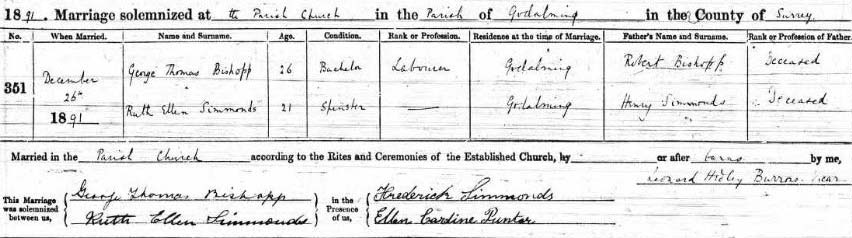 1891. Marriage solemnized at the Parish Church in the Parish of Godalming in the County of Surrey
No. When Married. Name and Surname. Age. Condition. Rank or Profession. Residence at the time of Marriage. Father's Name and Surname. Rank or Profession of Father.
351 December 26th 1891
George Thomas Bishopp 26 Bachelor Labourer Godalming Robert Bishopp Deceased
Ruth Ellen Simmonds 21 Spinster — Godalming Henry Simmonds Deceased
Married in the Parish Church according to the Rites and Ceremonies of the Established Church, by or after banns by me,
Leonard Hedley Burrows Vicar
This Marriage was solemnized between us, George Thomas Bishopp
Ruth Ellen Simmonds
in the Presence of us, Frederick Simmonds
Ellen Caroline Punter